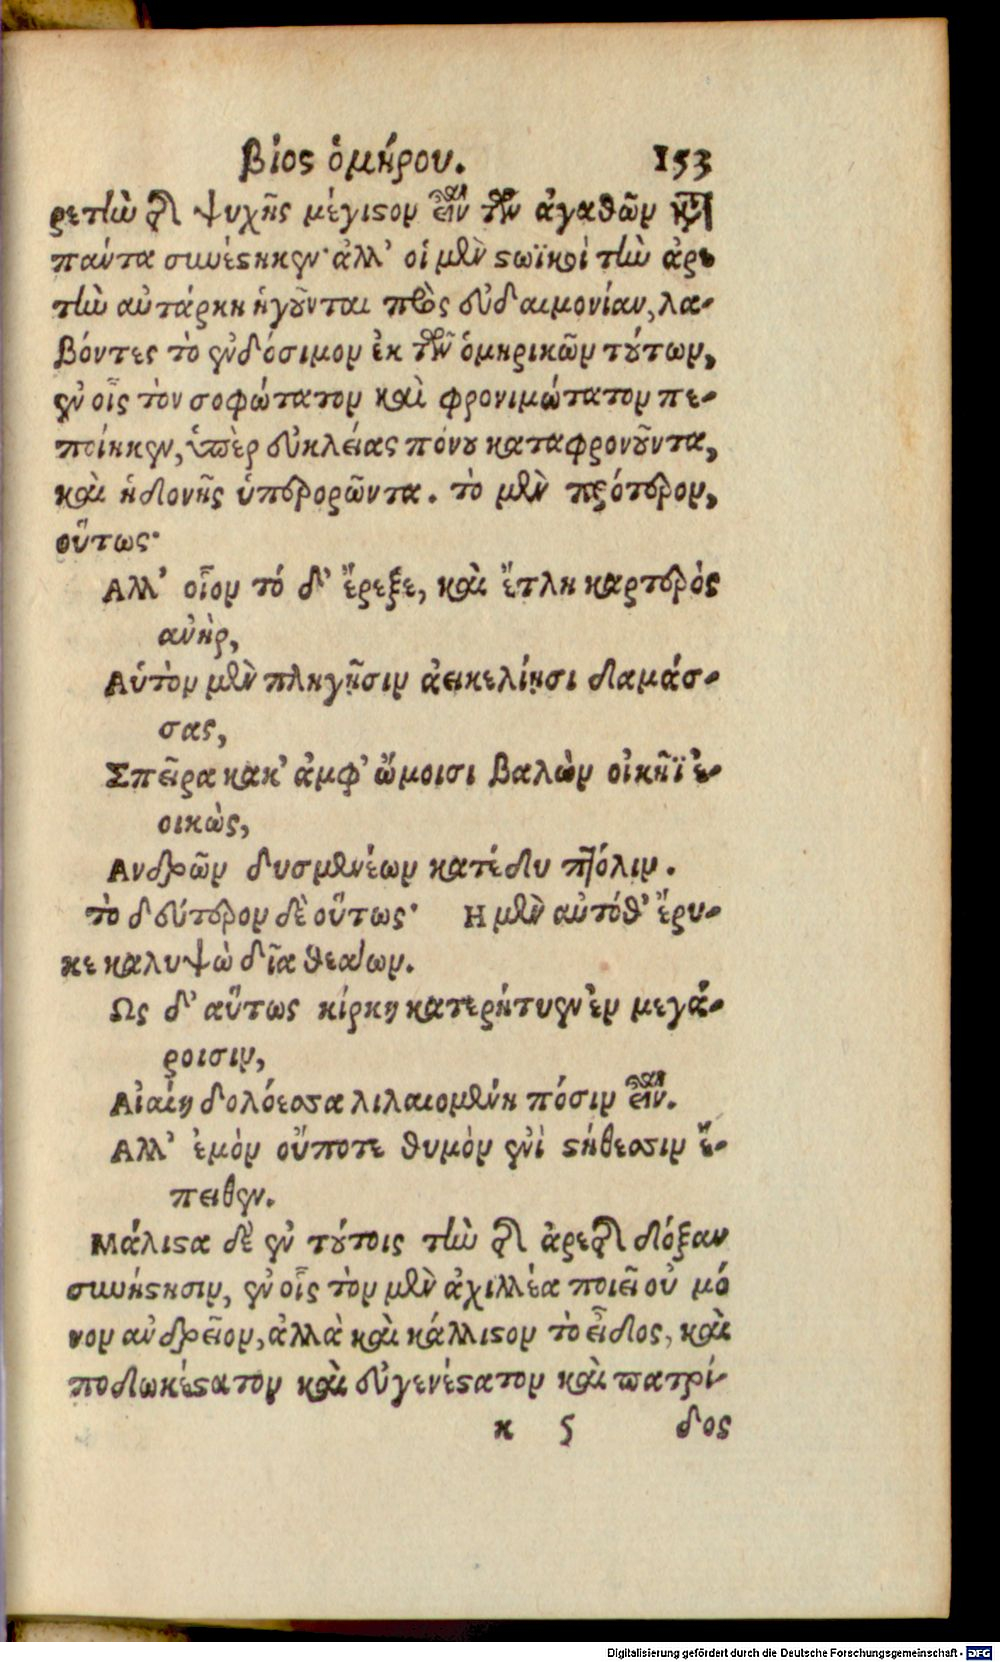 βίος ὁμήρου. 153
ρετὴν τῆς ψυχῆς μέγιστον εἶναι τῶν ἀγαθῶν κατὰ
πάντα συνέστηκεν· ἀλλ' οἱ μὲν στωϊκοὶ τὴν ἀρε
τὴν αὐτάρκη ἡγοῦνται πρὸς εὐδαιμονίαν, λα-
βόντες τὸ ἐνδόσιμον ἐκ τῶν ὁμηρικῶν τούτων,
ἐν οἷς τὸν σοφώτατον καὶ φρονιμώτατον πε-
ποίηκεν, ὑπὲρ εὐκλείας πόνου καταφρονοῦντα,
καὶ ἡδονῆς ὑπερορῶντα. τὸ μὲν πρότερον,
οὕτως·
Αλλ' οἷον τό δ' ἔρεξε, καὶ ἔτλη καρτερὸς
ανὴρ,
Αὑτὸν μὲν πληγῇσιν ἀεικελίῃσι δαμάσ-
σας,
Σπεῖρα κακ' ἀμφ' ὤμοισι βαλὼν οἰκῆϊ ἐ-
οικὼς,
Ανδρῶν δυσμενέων κατέδυ πτόλιν.
τὸ δεύτερον δὲ οὕτως· Η μὲν αὐτόθ' ἔρυ-
κε καλυψὼ δῖα θεάων.
Ως δ' αὔτως κίρκη κατερήτυεν ἐν μεγά-
ροισιν,
Αἰαίη δολόεσσα λιλαιομένη πόσιν εἶναι.
Αλλ' ἐμὸν οὔποτε θυμὸν ἐνὶ στήθεσσιν ἔ-
πειθεν.
Μάλιστα δὲ ἐν τούτοις τὴν τῆς ἀρετῆς δόξαν
συνήστησιν, ἐν οἷς τὸν μὲν ἀχιλλέα ποιεῖ οὐ μό
νον ανδρεῖον, ἀλλὰ καὶ κάλλιστον τὸ εἶδος, καὶ
ποδωκέστατον καὶ εὐγενέστατον καὶ πατρί-
κ 5 δος
Digitalisierung gefördert durch die Deutsche Forschungsgemeinschaft - DFG